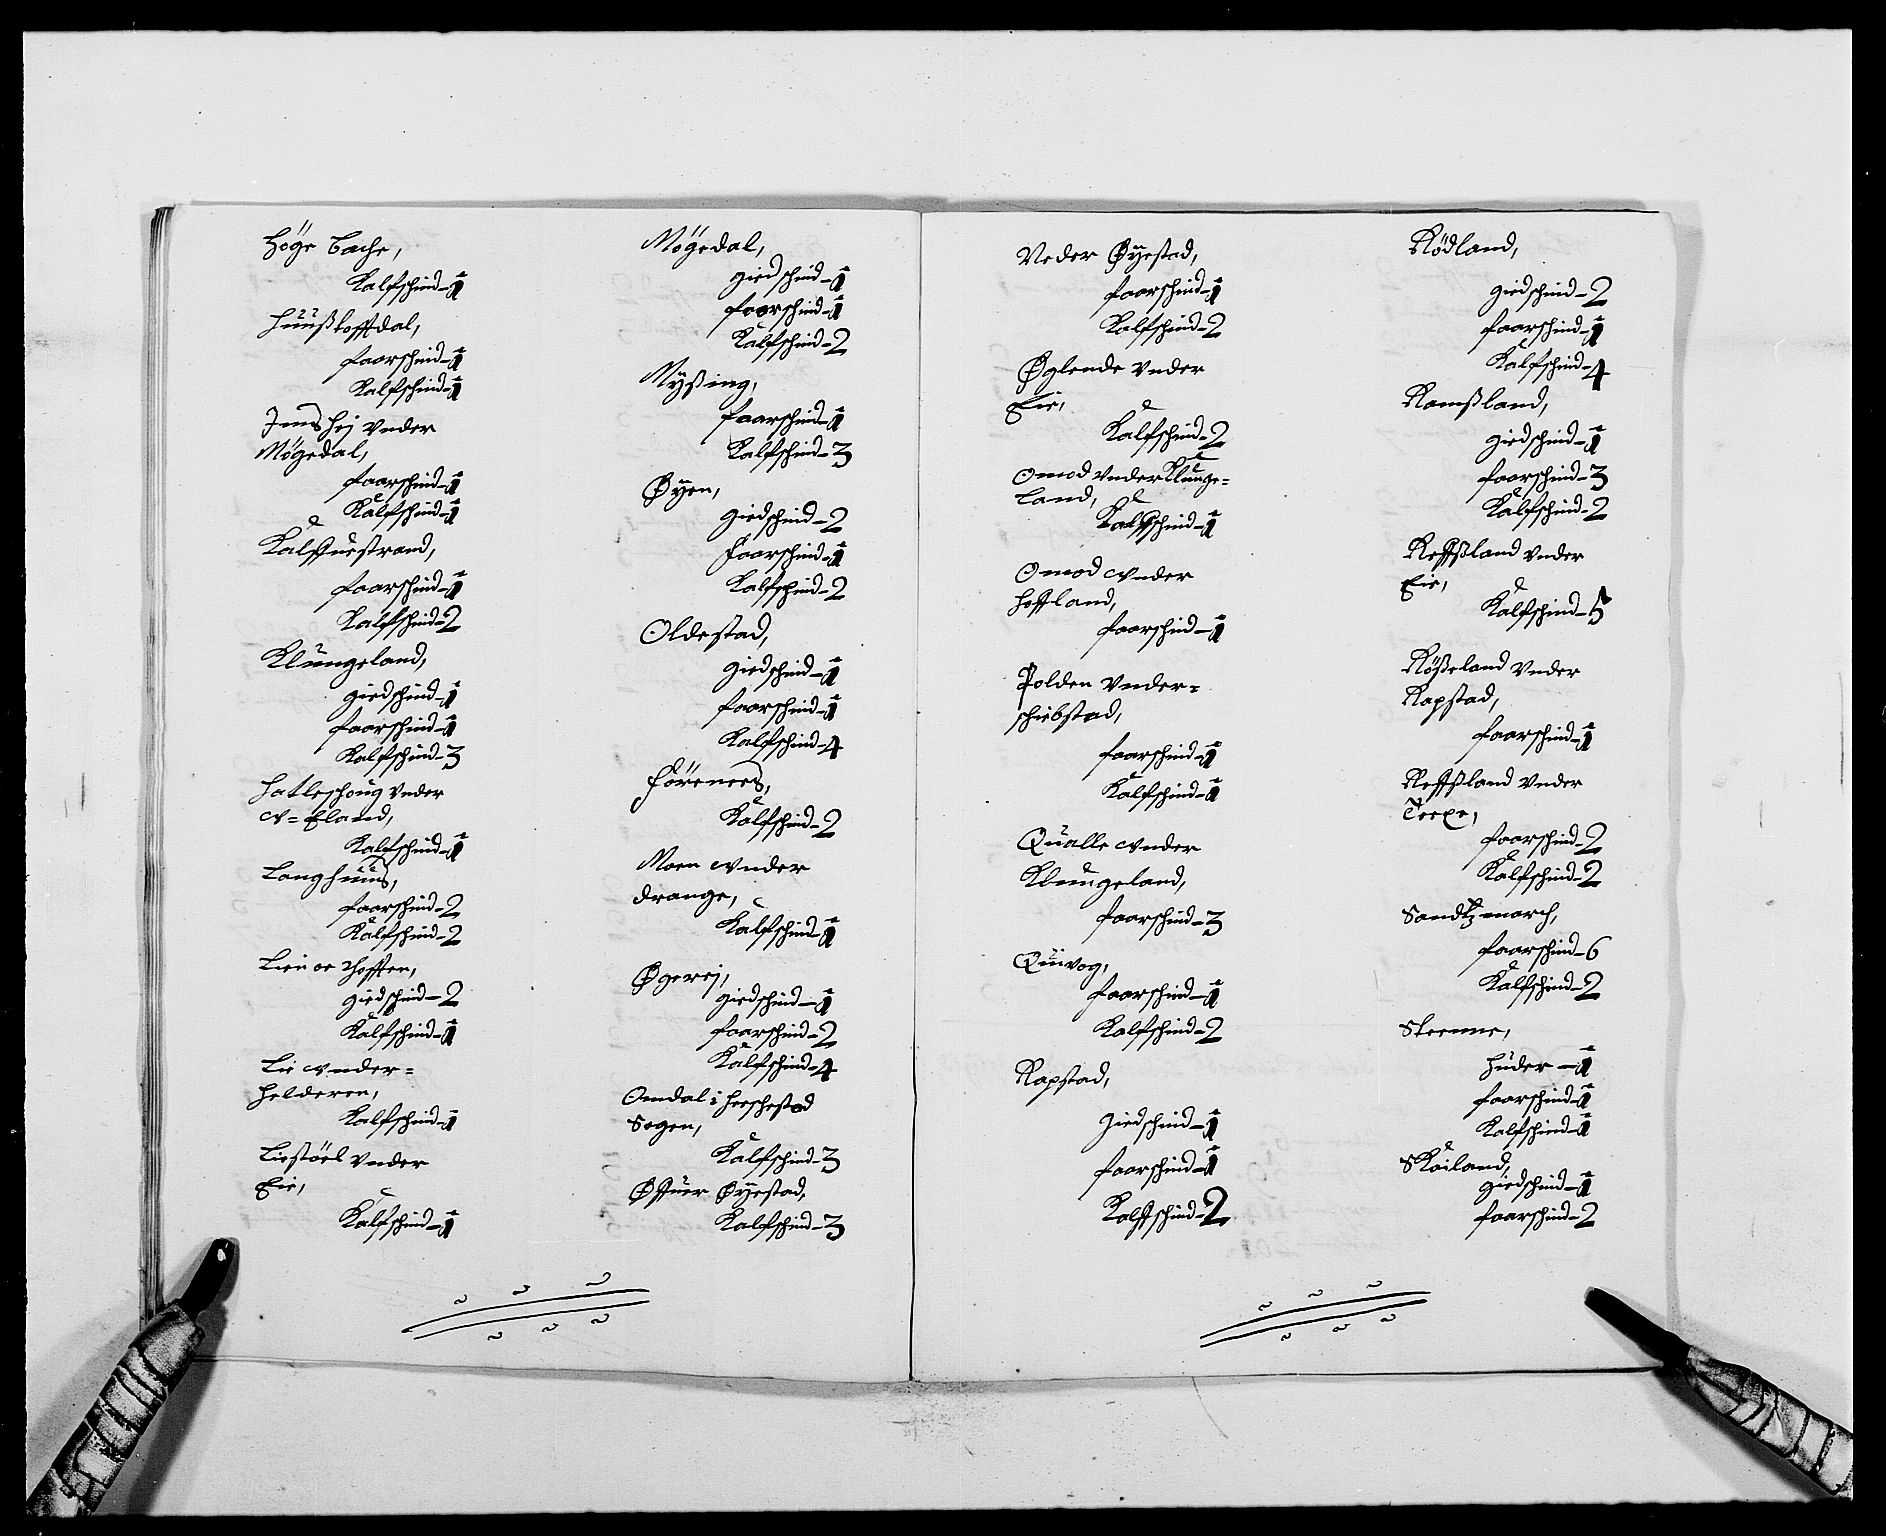 Höge bache,
Kalfschind - 1
Huußtofftdal,
faarschind - 1
Kalfschind - 1
Jens hej vnder
Mögedal,
faarschind - 1
Kalfschind - 1
Kalffuestrand,
faarschind - 1
Kalfschind - 2
Klungeland,
giedschind - 1
faarschind - 1
Kalfschind - 3
Hatleschoug vnder
Eland,
Kalfschind - 1
Langhuus,
faarschind - 2
Kalfschind - 2
Lien
giedschind - 2
Kalfschind - 1
Lie vnder =
Helderen,
Kalfschind - 1
Liestöel vnder
Eie,
Kalfschind - 1
Mögedal,
giedschind - 1
faarschind - 1
Kalfschind - 2
Myßing,
faarschind - 1
Kalfschind - 3
Øyen,
giedschind - 2
faarschind - 1
Kalfschind - 2
Oldestad,
giedschind - 1
faarschind - 1
Kalfschind - 4
Förenees,
Kalfschind - 2
Moen vnder
drange,
Kalfschind - 1
Øgerej,
giedschind - 1
faarschind - 2
Kalfschind - 4
Omdal i heeschestad
Sogen,
Kalfschind - 3
Øffuer Øyestad,
Kalfschind - 3
Neder Øyestad,
faarschind - 1
Kalfschind - 2
Øglende vnder
Eie,
Kalfschind - 2
Omod vnder Klunge =
land,
Kalfschind - 1
Omod vnder
hoffland,
faarschind - 1
Polden vnder =
schiebstad,
faarschind - 1
Kalfschind - 1
Qualle vnder
Klungeland,
faarschind - 3
Quivog,
faarschind - 1
Kalfschind - 2
Rapstad,
giedschind - 1
faarschind - 1
Kalffschind - 2
Rödland,
giedschind - 2
faarschind - 1
Kalfschind - 4
Ramßland,
giedschind - 1
faarschind - 3
Kalfschind - 2
Reffßland vnder
Eie,
Kalfschind - 5
Rößeland vnder
Rapstad,
faarschind - 1
Reffßland vnder
Teexe,
faarschind - 2
Kalfschind - 2
Sandtzmarch,
faarschind - 6
Kalfschind - 2
Steenne,
Huder - 1
faarschind - 1
Kalfschind - 1
Skailand,
giedschind - 1
faarschind - 2